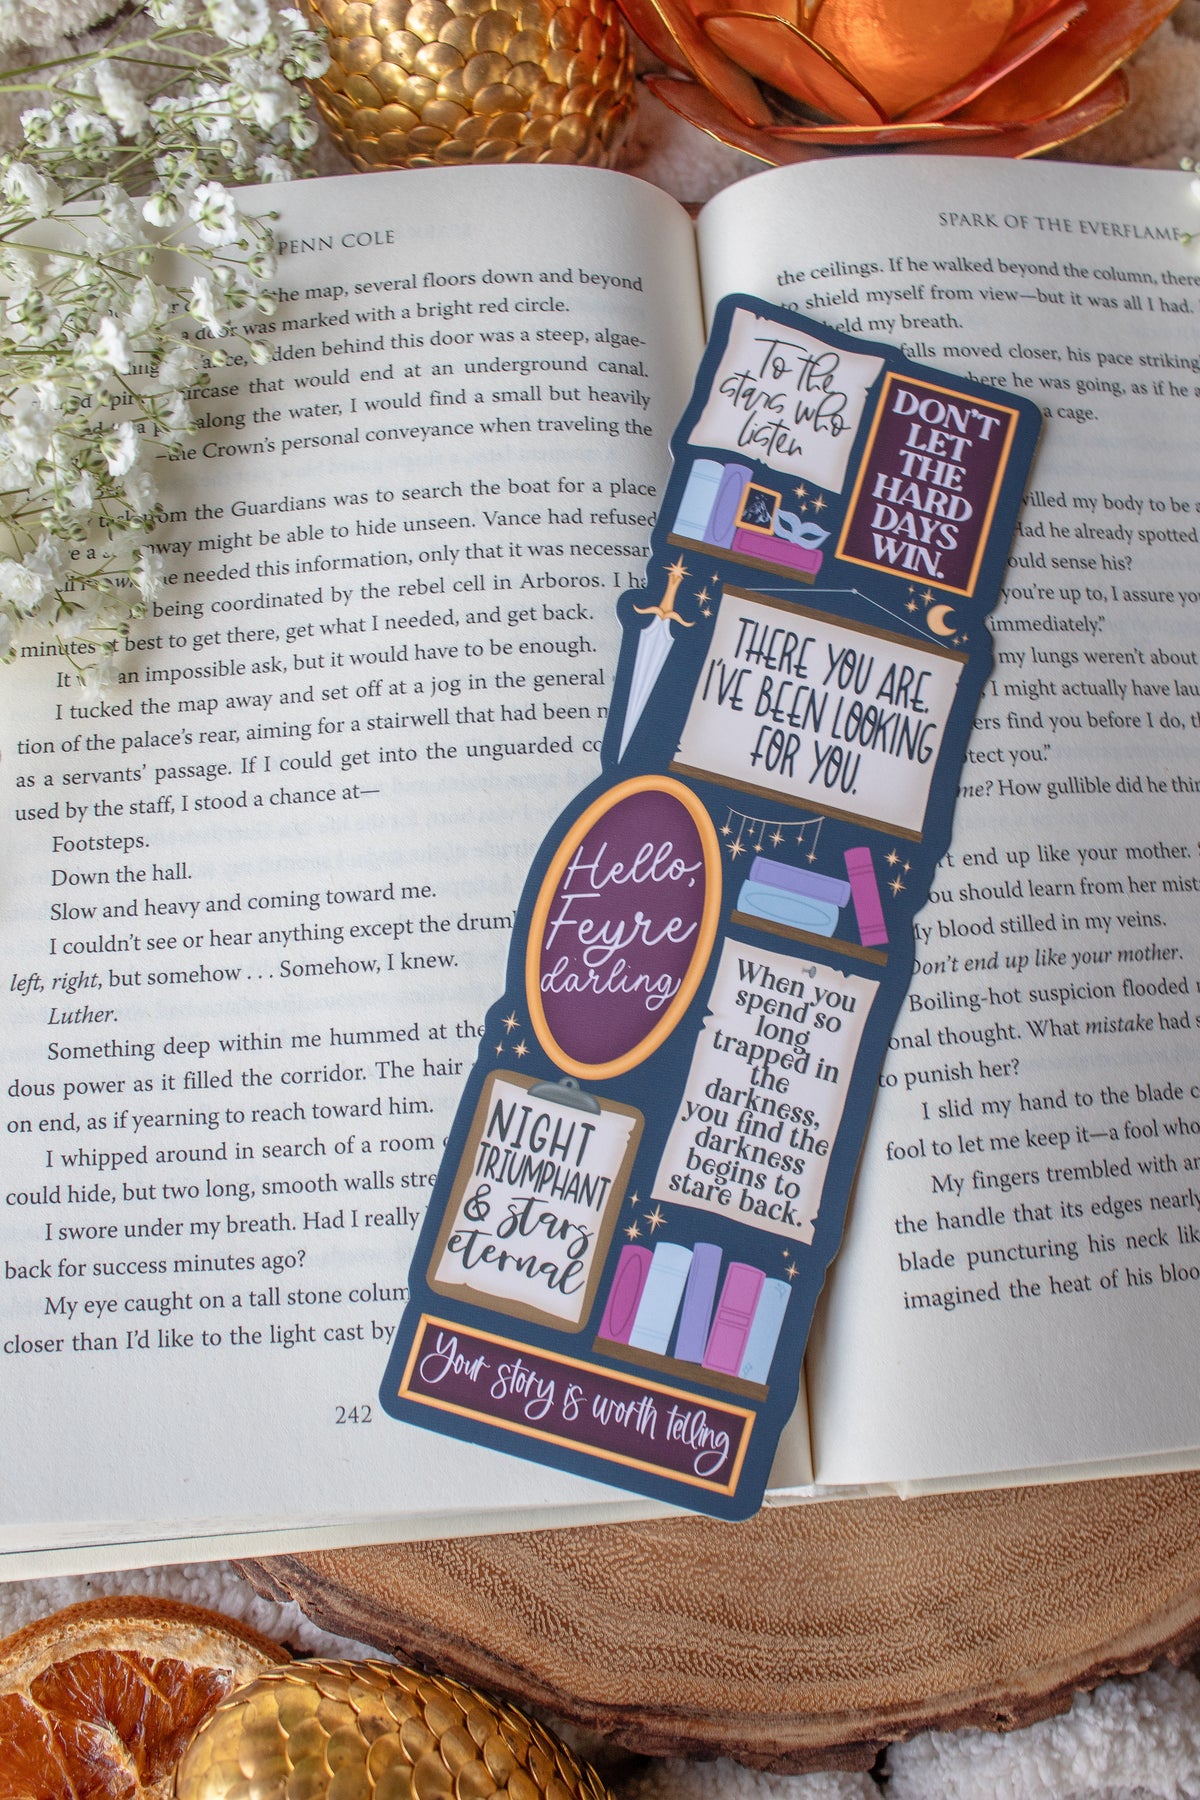 PENN COLE
the map, several floors down and beyond
door was marked with a bright red circle.
hidden behind this door was a steep, algae-
staircase that would end at an underground canal.
along the water, I would find a small but heavily
—the Crown's personal conveyance when traveling the
from the Guardians was to search the boat for a place
might be able to hide unseen. Vance had refused
needed this information, only that it was
being coordinated by the rebel cell in Arboros. I
minutes at best to get there, get what I needed, and get back.
It an impossible ask, but it would have to be enough.
I tucked the map away and set off at a jog in the general
tion of the palace's rear, aiming for a stairwell that had been
as a servants' passage. If I could get into the unguarded
used by the staff, I stood a chance at—
Footsteps.
Down the hall.
Slow and heavy and coming toward me.
I couldn't see or hear anything except the
left, right, but somehow . . . Somehow, I knew.
Luther.
Something deep within me hummed at the
dous power as it filled the corridor. The hair
on end, as if yearning to reach toward him.
I whipped around in search of a room
could hide, but two long, smooth walls
I swore under my breath. Had I really
back for success minutes ago?
My eye caught on a tall stone
closer than I'd like to the light cast by
242
SPARK OF THE EVERFLAME
the ceilings. If he walked beyond the column, there
to shield myself from view—but it was all I had.
held my breath.
falls moved closer, his pace striking
where he was going, as if he
a cage.
willed my body to be a
Had he already spotted
ould sense his?
you're up to, I assure you
immediately."
my lungs weren't about
I might actually have
ers find you before I do,
tect you."
me? How gullible did he
't end up like your mother.
ou should learn from her
My blood stilled in my veins.
Don't end up like your mother.
Boiling-hot suspicion flooded
onal thought. What mistake had
to punish her?
I slid my hand to the blade
fool to let me keep it—a fool who
My fingers trembled with
the handle that its edges nearly
blade puncturing his neck
imagined the heat of his
To the
stars who
listen
DON'T
LET
THE
HARD
DAYS
WIN.
THERE YOU ARE.
I'VE BEEN LOOKING
FOR YOU.
Hello,
Feyre
darling
When you
spend so
long
trapped in
the
darkness,
you find the
darkness
begins to
stare back.
NIGHT
TRIUMPHANT
& stars
eternal
Your story is worth telling